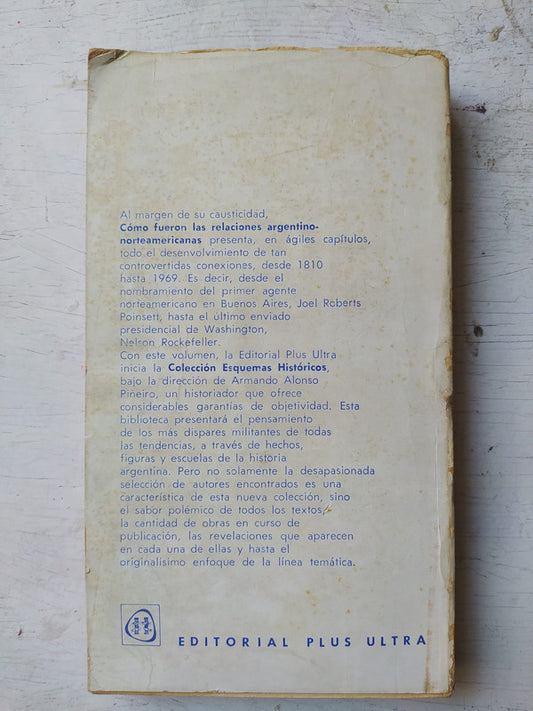 Al margen de su causticidad,
Cómo fueron las relaciones argentino-
norteamericanas presenta, en ágiles capítulos,
todo el desenvolvimiento de tan
controvertidas conexiones, desde 1810
hasta 1969. Es decir, desde el
nombramiento del primer agente
norteamericano en Buenos Aires, Joel Roberts
Poinsett, hasta el último enviado
presidencial de Washington,
Nelson Rockefeller.
Con este volumen, la Editorial Plus Ultra
inicia la Colección Esquemas Históricos,
bajo la dirección de Armando Alonso
Piñeiro, un historiador que ofrece
considerables garantías de objetividad. Esta
biblioteca presentará el pensamiento
de los más dispares militantes de todas
las tendencias, a través de hechos,
figuras y escuelas de la historia
argentina. Pero no solamente la desapasionada
selección de autores encontrados es una
característica de esta nueva colección, sino
el sabor polémico de todos los textos,
la cantidad de obras en curso de
publicación, las revelaciones que aparecen
en cada una de ellas y hasta el
originalísimo enfoque de la línea temática.
EDITORIAL PLUS ULTRA